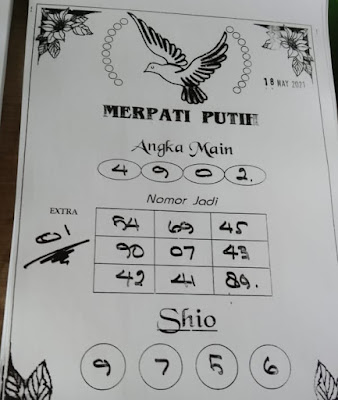 18 MAY 2021
MERPATI PUTIH
Angka Main
4 9 0 2.
Nomor Jadi
EXTRA
01
54 69 45
90 07 43
42 41 89.
Shio
9 7 5 6